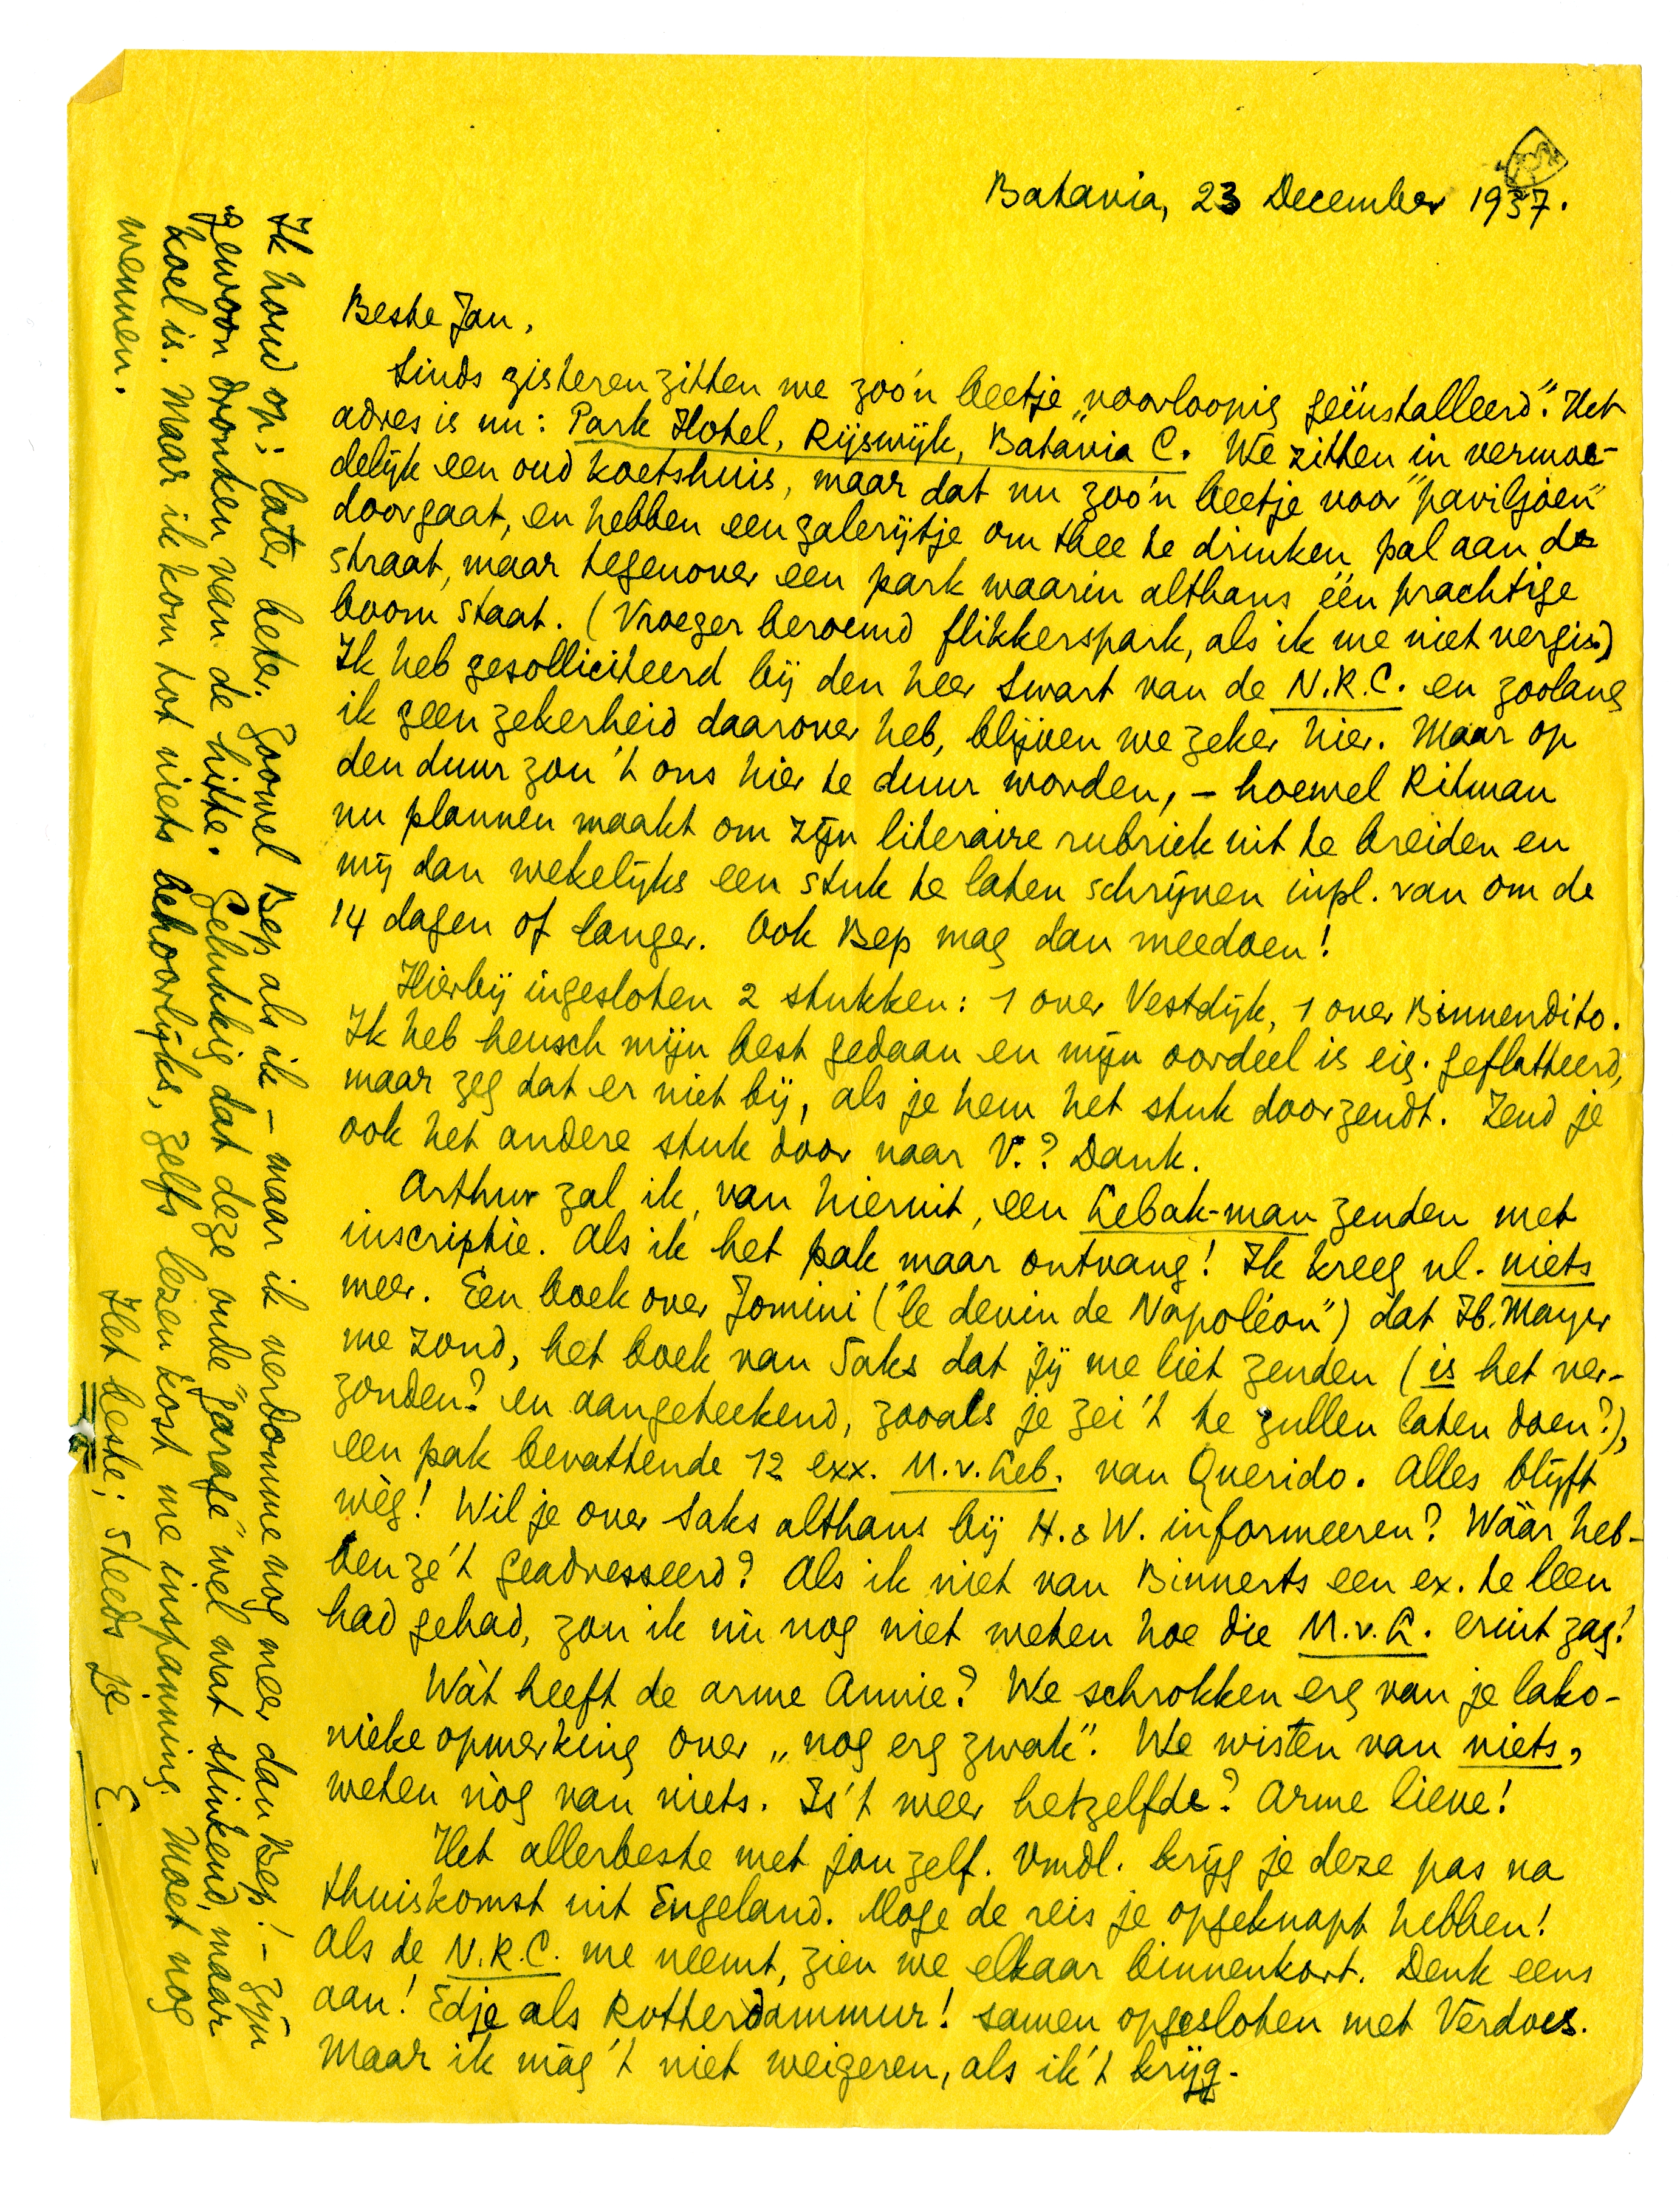 Batavia, 23 December 1937.
Beste Jan,
Sinds gisteren zitten we zoo'n beetje „voorloopig geïnstalleerd". Het
adres is nu: Park Hotel, Rijswijk, Batavia C. We zitten in vermoe-
delijk een oud koetshuis, maar dat nu zoo'n beetje voor "paviljoen"
doorgaat, en hebben een galerijtje om thee te drinken pal aan de
straat, maar tegenover een park waarin althans één prachtige
boom staat. (Vroeger beroemd flikkerspark, als ik me niet vergis.)
Ik heb gesolliciteerd bij den heer Swart van de N.R.C. en zoolang
ik geen zekerheid daarover heb, blijven we zeker hier. Maar op
den duur zou 't ons hier te duur worden, – hoewel Ritman
nu plannen maakt om zijn literaire rubriek uit te breiden en
mij dan wekelijks een stuk te laten schrijven inpl. van om de
14 dagen of langer. Ook Bep mag dan meedoen!
Hierbij ingesloten 2 stukken: 1 over Vestdijk, 1 over Binnendito.
Ik heb heusch mijn best gedaan en mijn oordeel is eig. geflatteerd,
maar zeg dat er niet bij, als je hem het stuk doorzendt. Zend je
ook het andere stuk door naar V.? Dank.
Arthur zal ik, van hieruit, een Lebak-man zenden met
inscriptie. Als ik het pak maar ontvang! Ik kreeg nl. niets
meer. Een boek over Jomini ("le devin de Napoléon") dat Hb. Mayer
me zond, het boek van Saks dat jij me liet zenden (is het ver-
zonden? en aangeteekend, zooals je zei 't te zullen laten doen?),
een pak bevattende 12 exx. M.v.Leb. van Querido. Alles blijft
wég! Wil je over Saks althans bij H. & W. informeeren? Wáár heb-
ben ze 't geadresseerd? Als ik niet van Binnerts een ex. te leen
had gehad, zou ik nu nog niet weten hoe die M.v.L. eruit zag!
Wàt heeft de arme Annie? We schrokken erg van je lako-
nieke opmerking over „nog erg zwak". We wisten van niets,
weten nòg van niets. Is 't weer hetzelfde? Arme lieve!
Het allerbeste met jou zelf. Vmdl. krijg je deze pas na
thuiskomst uit Engeland. Moge de reis je opgeknapt hebben!
Als de N.R.C. me neemt, zien we elkaar binnenkort. Denk eens
aan! Edje als Rotterdammer! Samen opgesloten met Verdoes.
Maar ik màg 't niet weigeren, als ik 't krijg.
Ik houd op; later beter. Zoowel Bep als ik – maar ik verdomme nog meer dan Bep! – zijn
gewoon dronken van de hitte. Gelukkig dat deze oude "garage" wel wat stinkend, maar
koel is. Maar ik kom tot niets behoorlijks, zelfs lezen kost me inspanning. Moet nog
wennen.
Het beste; steeds je
E.